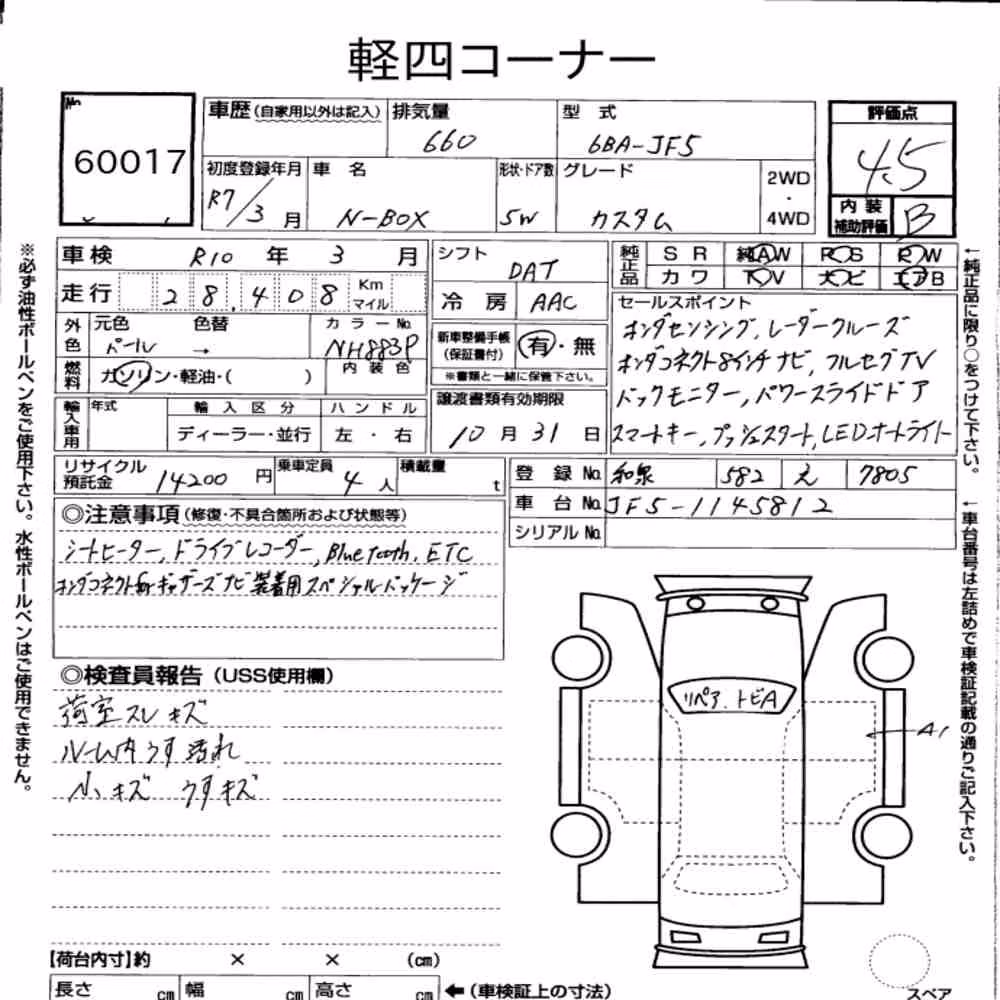 軽四コーナー
No. 60017
車歴(自家用以外は記入) 排気量 660 型式 6BA-JF5
評価点 4.5
初度登録年月 R7/3月 車名 N-BOX 形状・ドア数 5W グレード カスタム 2WD・4WD
内装補助評価 B
車検 R10年 3月 シフト DAT 純正品 SR 純AW PS PW
走行 28,408 Km マイル 冷房 AAC カワ TV ナビ エアB
外色 元色 パール 色替 → カラーNo. NH883P
新車整備手帳(保証書付) 有・無
※書類と一緒に保管下さい。
燃料 ガソリン・軽油・( ) 内装色
セールスポイント
ホンダセンシング,レーダークルーズ
ホンダコネクト8インチナビ,フルセグTV
バックモニター,パワースライドドア
スマートキー,プッシュスタート,LEDオートライト
輸入車用 年式 輸入区分 ハンドル
ディーラー・並行 左・右
譲渡書類有効期限
10月31日
リサイクル預託金 14200円 乗車定員 4人 積載量 t
登録No. 和泉 582 え 7805
車台No. JF5-1145812
シリアルNo.
◎注意事項(修復・不具合箇所および状態等)
シートヒーター,ドライブレコーダー,Bluetooth.ETC
ホンダコネクトforギャザーズナビ装着用スペシャルパッケージ
◎検査員報告(USS使用欄)
荷室スレキズ
ルーム内うす汚れ
小キズ うすキズ
リペア.トビA
A1
【荷台内寸】約 × × (cm)
長さ cm 幅 cm 高さ cm ←(車検証上の寸法)
スペア
※必ず油性ボールペンをご使用下さい。水性ボールペンはご使用できません。
←純正品に限り○をつけて下さい。
←車台番号は左詰めで車検証記載の通りご記入下さい。